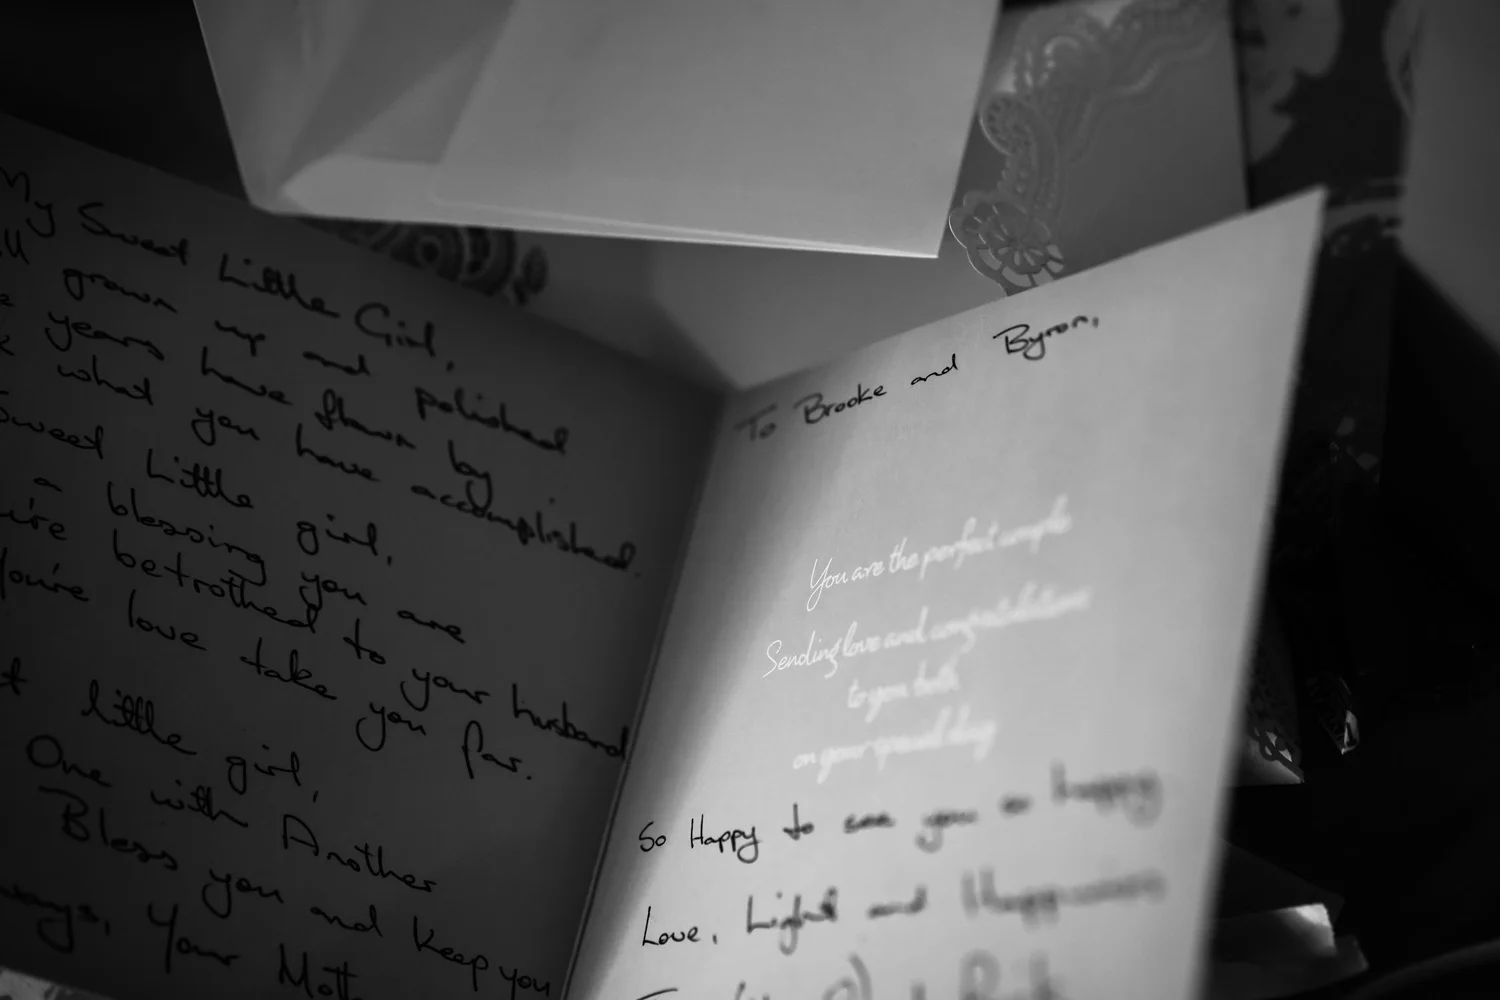 My Sweet Little Girl,
grown up and polished
years have flown by
what you have accomplished.
Sweet Little girl,
a blessing you are
You're betrothed to your husband
You're love take you far.
little girl,
One with Another
Bless you and keep you
Your
To Brooke and Byron,
You are the perfect couple
Sending love and congratulations
to you both
on your special day
So Happy to see you so happy
Love, Light and Happiness